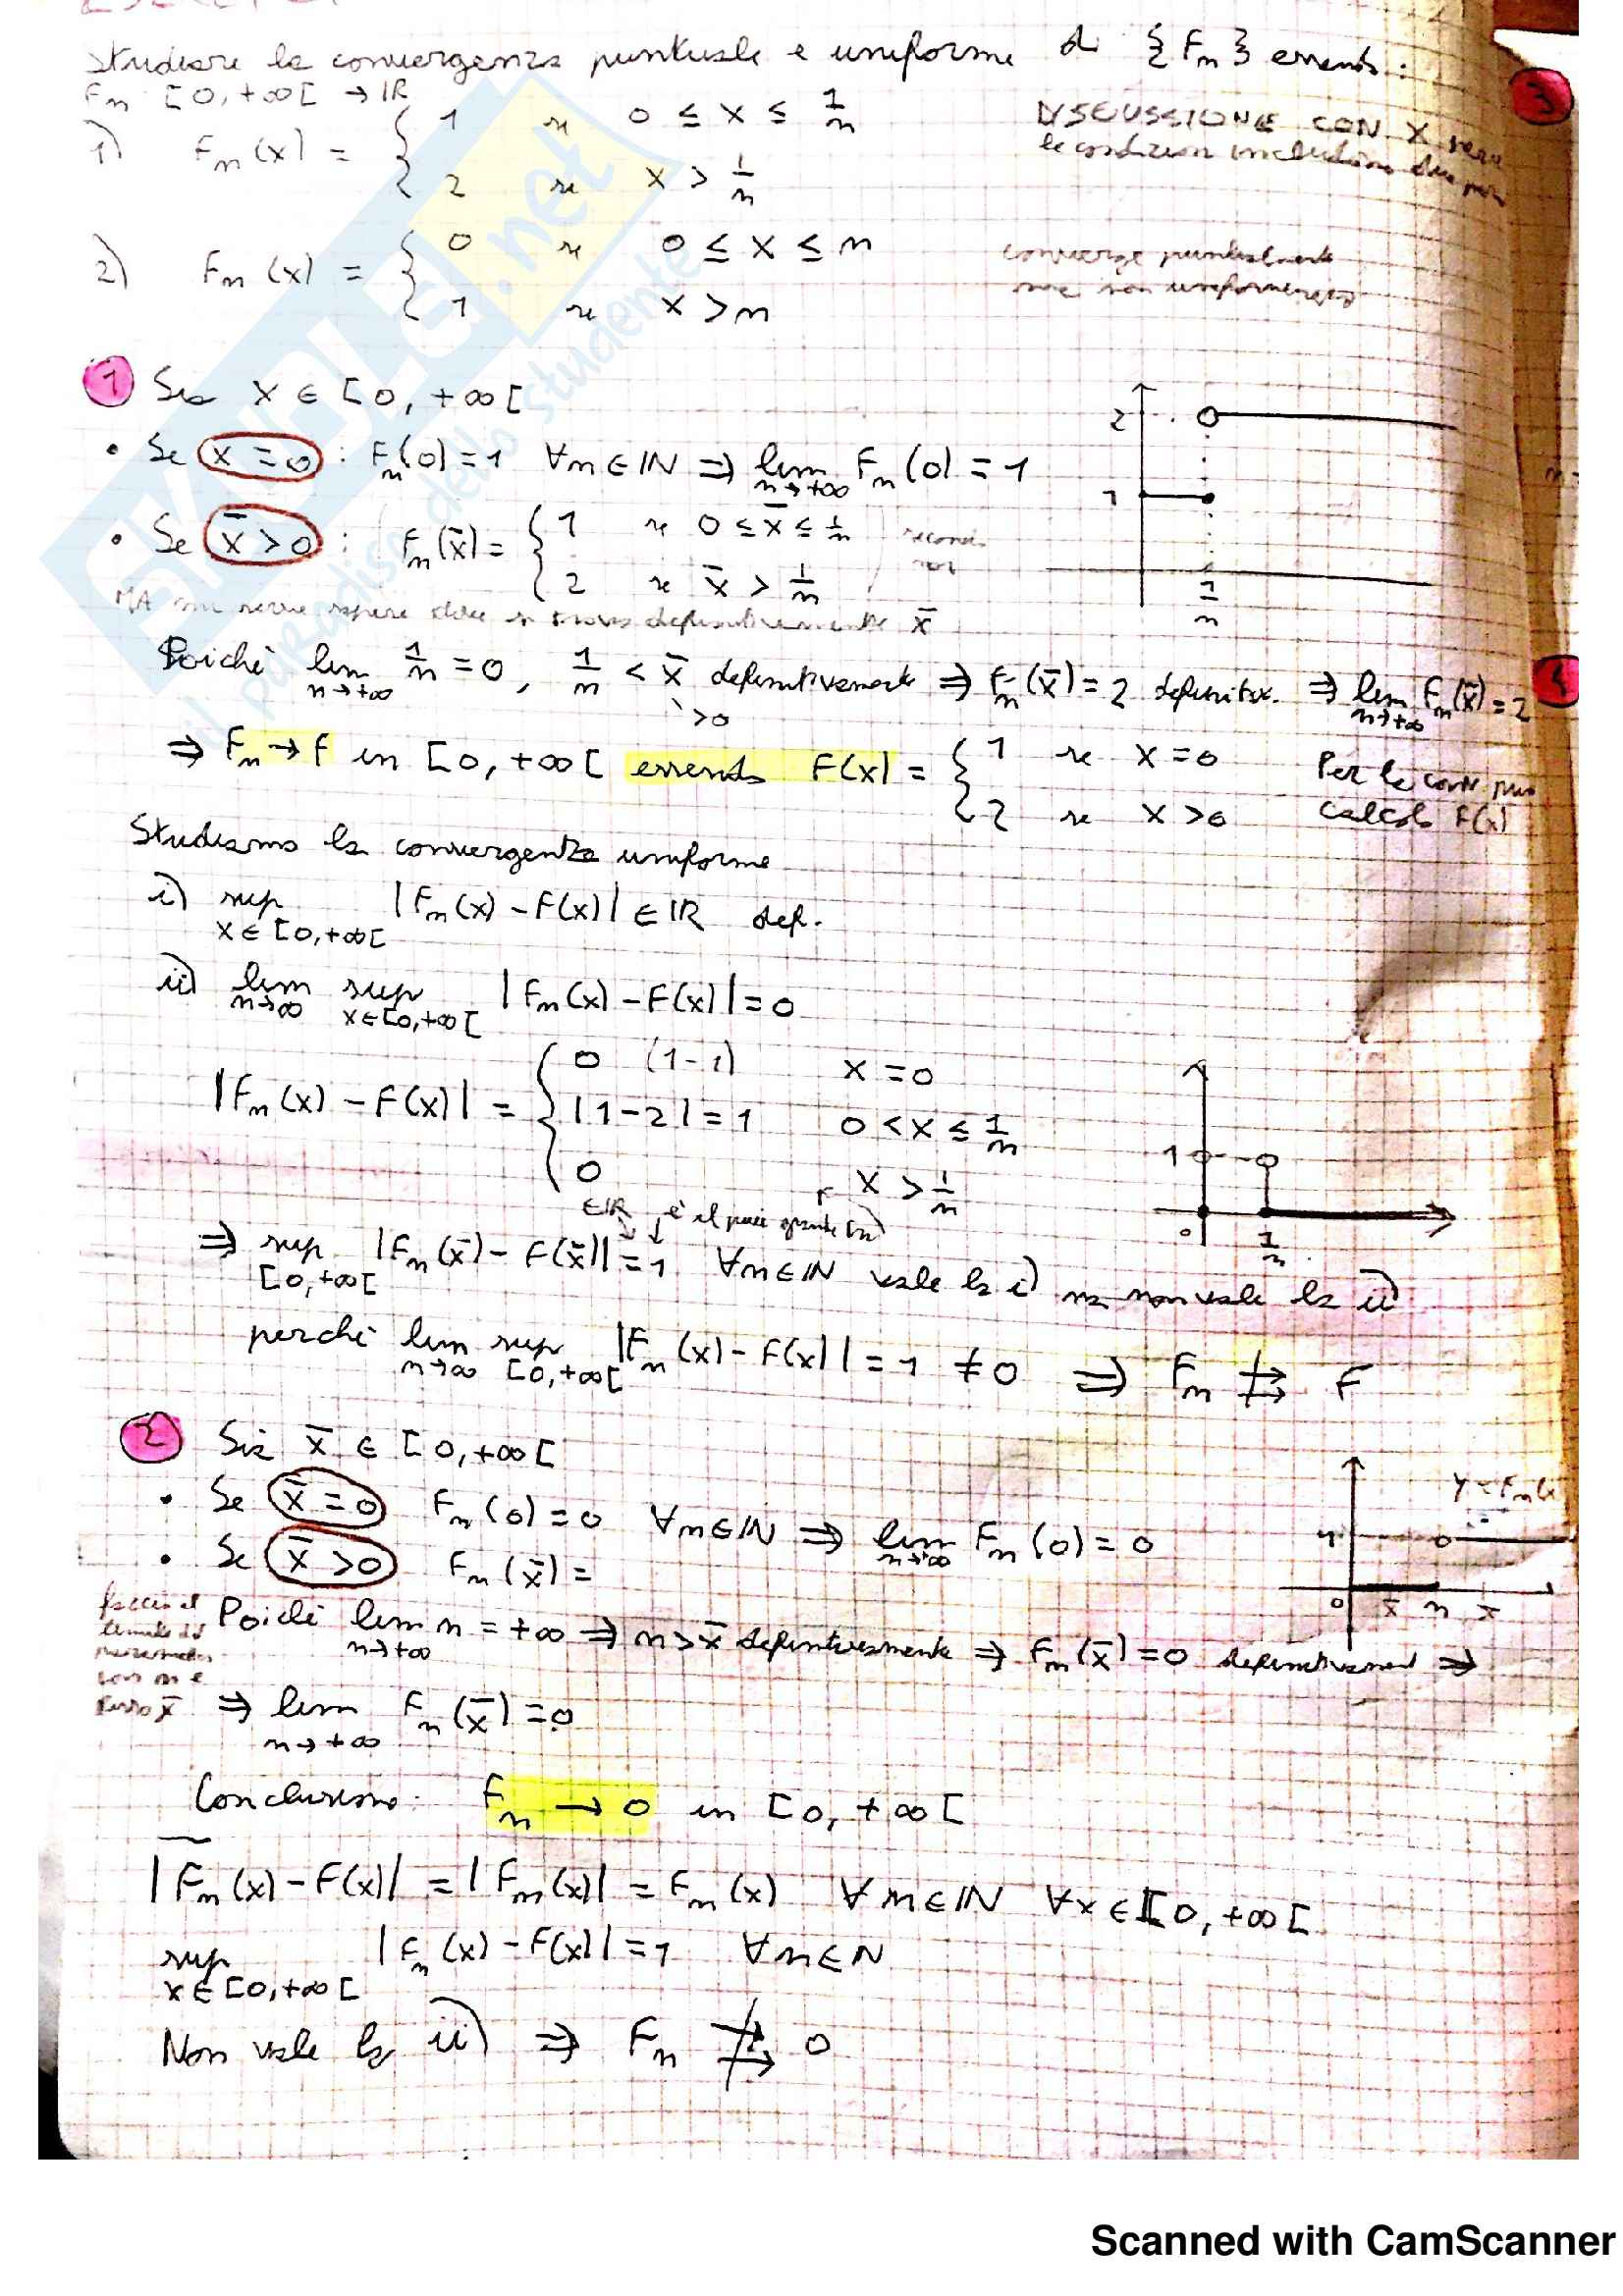 Studiare la convergenza puntuale e uniforme di {Fn} essendo:
Fn [0, +∞[ → IR
1) Fn(x) = { 1 se 0 ≤ x ≤ 1/n
2 se x > 1/n
DISCUSSIONE CON X
le condizioni
2) Fn(x) = { 0 se 0 ≤ x ≤ n
1 se x > n
converge puntualmente
ma non uniformemente
3
1 Sia x ∈ [0, +∞[
• Se x = 0 : Fn(0) = 1 ∀n ∈ IN ⇒ lim n→+∞ Fn(0) = 1
• Se x̄ > 0 : Fn(x̄) = { 1 se 0 ≤ x̄ ≤ 1/n
2 se x̄ > 1/n
2
1
1/n
MA mi serve sapere dove si trova definitivamente x̄
Poiché lim n→+∞ 1/n = 0, 1/n < x̄ definitivamente ⇒ Fn(x̄) = 2 definitiv. ⇒ lim n→+∞ Fn(x̄) = 2
>0
⇒ Fn → f in [0, +∞[ essendo F(x) = { 1 se x = 0
2 se x > 0
Per la conv
calcolo F(x)
Studiamo la convergenza uniforme
i) sup x∈[0,+∞[ |Fn(x) - F(x)| ∈ IR def.
ii) lim n→∞ sup x∈[0,+∞[ |Fn(x) - F(x)| = 0
|Fn(x) - F(x)| = { 0 (1-1) x = 0
|1-2| = 1 0 < x ≤ 1/n
0 x > 1/n
1
0 1/n
∈IR è il più grande
⇒ sup [0,+∞[ |Fn(x̄) - F(x̄)| = 1 ∀n ∈ IN vale la i) ma non vale la ii)
perché lim n→∞ sup [0,+∞[ |Fn(x) - F(x)| = 1 ≠ 0 ⇒ Fn ⇉̸ F
2 Sia x̄ ∈ [0, +∞[
• Se x̄ = 0 Fn(0) = 0 ∀n ∈ IN ⇒ lim n→+∞ Fn(0) = 0
• Se x̄ > 0 Fn(x̄) =
y = Fn(x
1
0 x̄ n x̄
faccio il
con n e
fisso x̄
Poiché lim n→+∞ n = +∞ ⇒ n > x̄ definitivamente ⇒ Fn(x̄) = 0 definitivament ⇒
⇒ lim n→+∞ Fn(x̄) = 0
Conclusione: Fn → 0 in [0, +∞[
|Fn(x) - F(x)| = |Fn(x)| = Fn(x) ∀n ∈ IN ∀x ∈ [0, +∞[
sup x∈[0,+∞[ |Fn(x) - F(x)| = 1 ∀n ∈ N
Non vale la ii) ⇒ Fn ⇉̸ 0
SKUOLA.net
il paradiso dello studente
Scanned with CamScanner